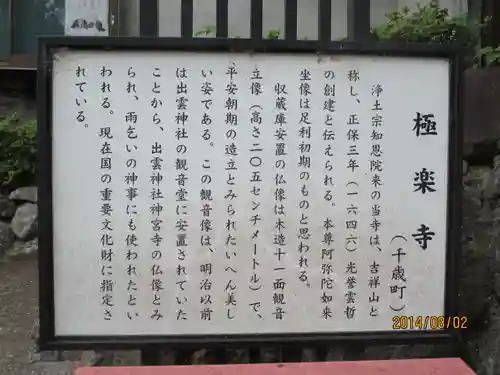 極楽寺
（千歳町）
浄土宗知恩院末の当寺は、吉祥山と
称し、正保三年（一六四六）光誉雲哲
の創建と伝えられる。本尊阿弥陀如来
坐像は足利初期のものと思われる。
収蔵庫安置の仏像は木造十一面観音
立像（高さ二〇五センチメートル）で、
平安朝期の造立とみられたいへん美し
い姿である。この観音像は、明治以前
は出雲神社の観音堂に安置されていた
ことから、出雲神社神宮寺の仏像とみ
られ、雨乞いの神事にも使われたとい
われる。現在国の重要文化財に指定さ
れている。
2014/08/02